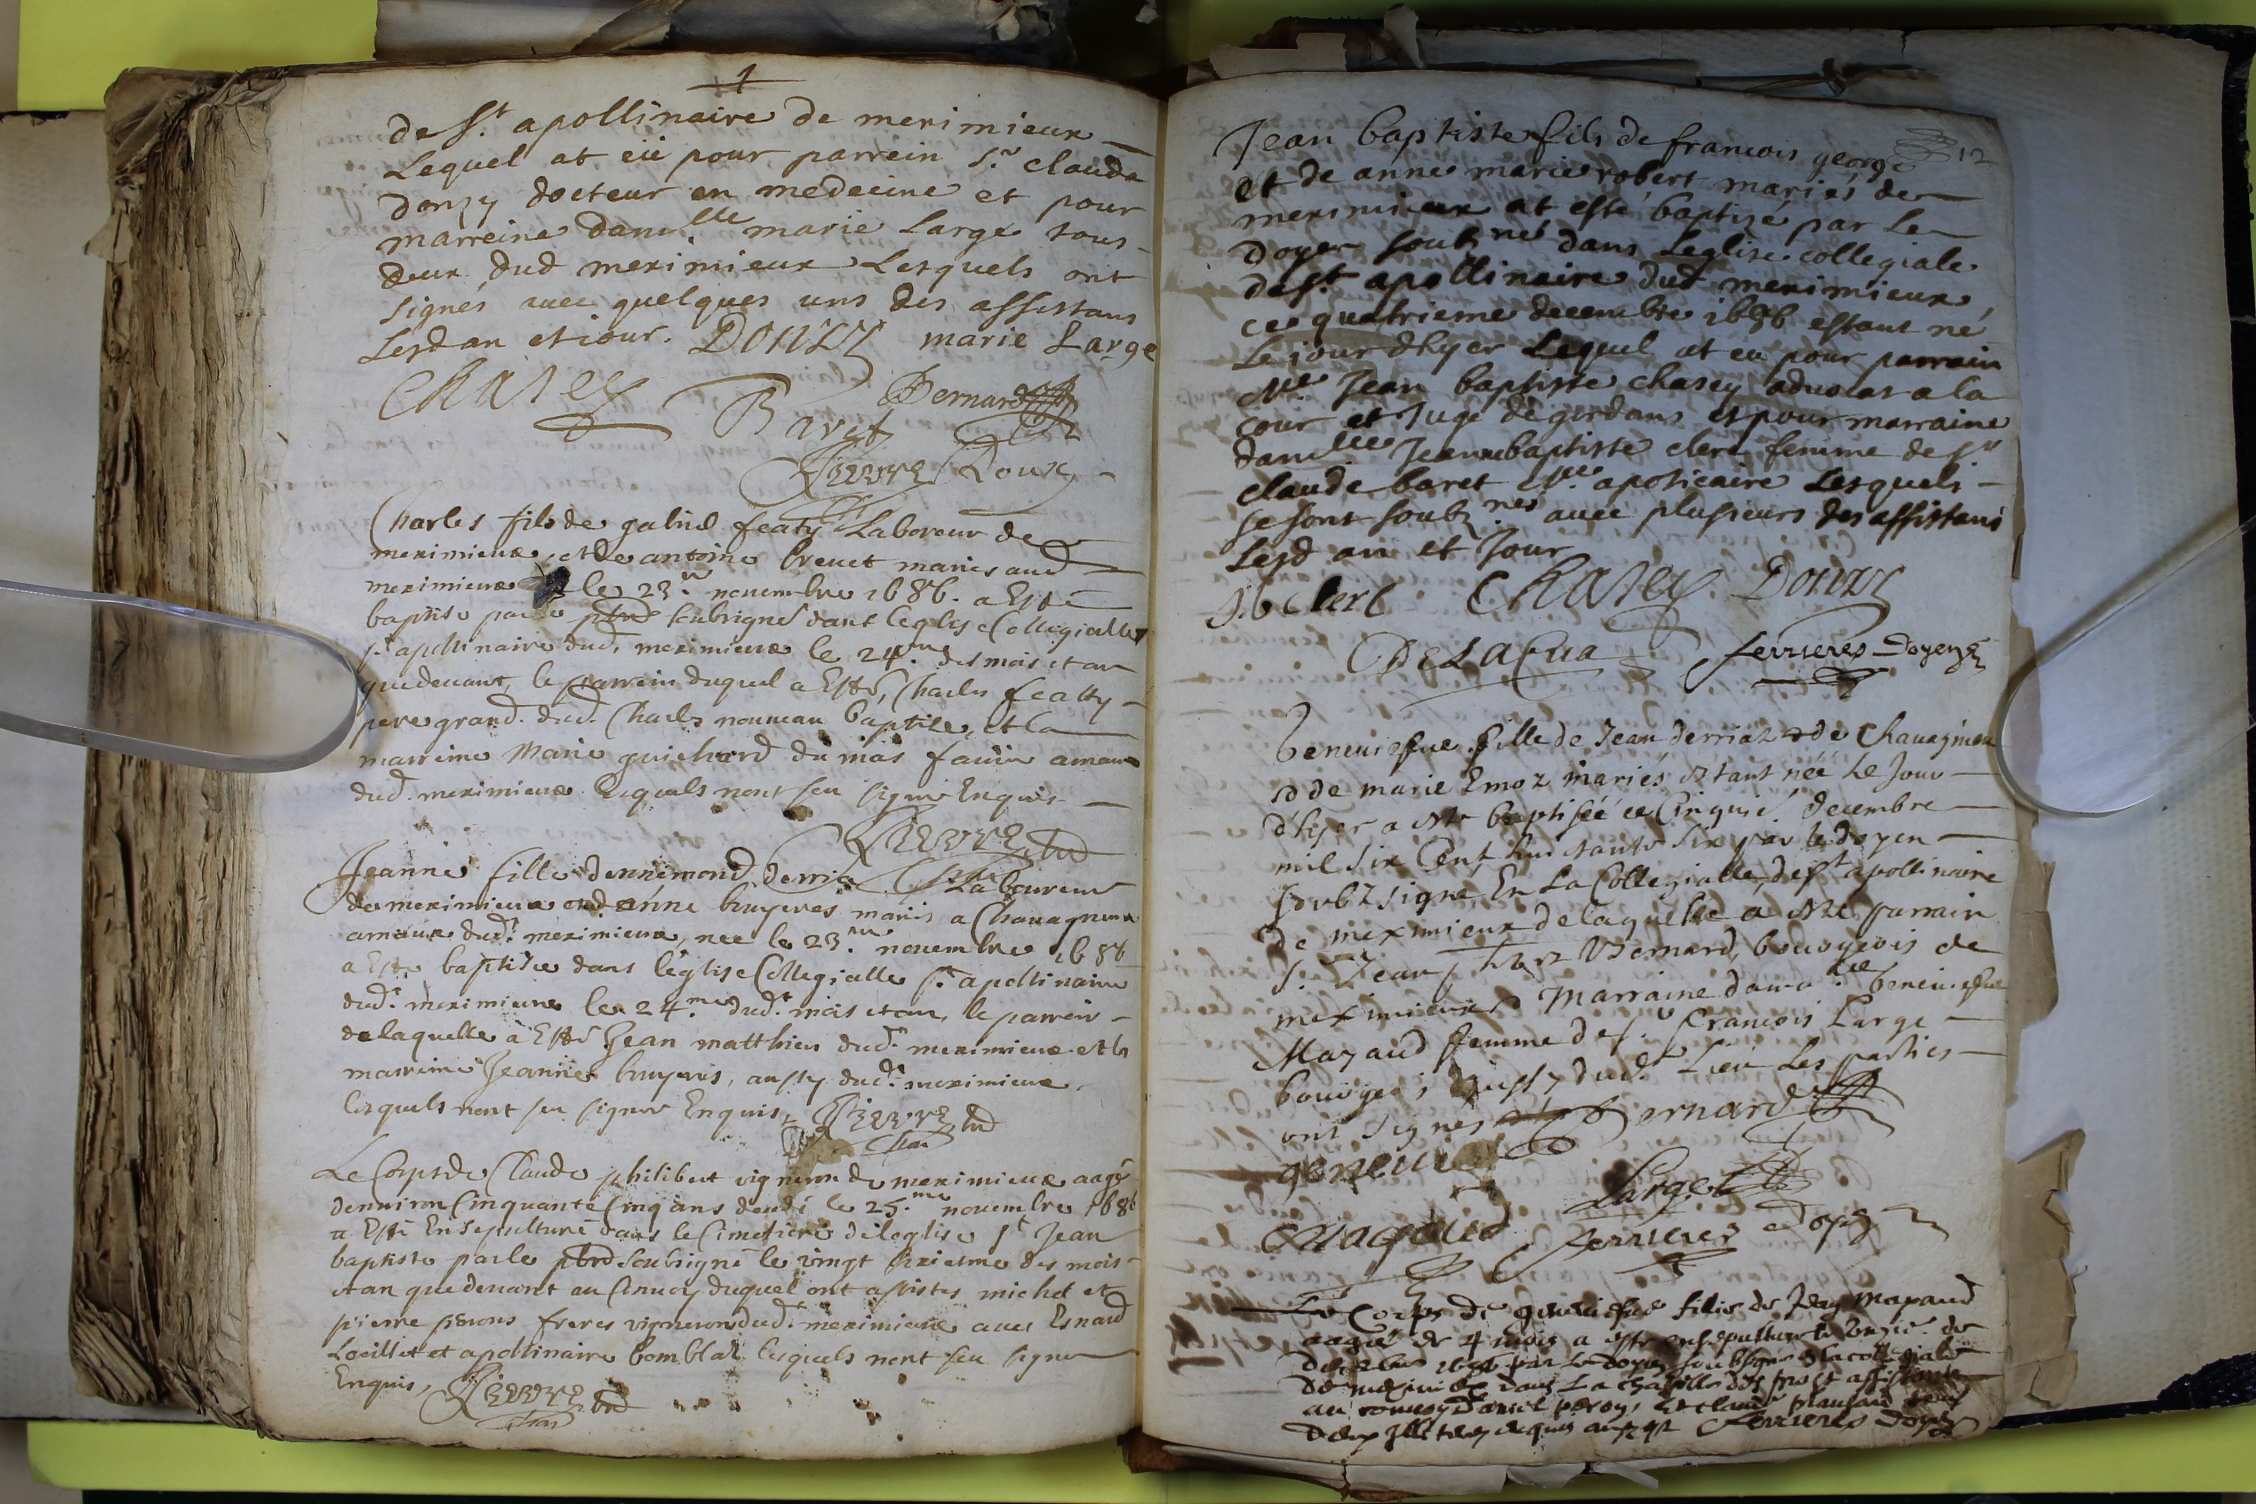 de St apollinaire de meximieux
Lequel at eü pour parrein Sr claude
donzy docteur en medecine et pour
marreine damlle marie Large tous
deux dud meximieux Lesquels ont
signés avec quelques uns des assistans
Lesd an et iour. DONZY marie Large
Charey Baret Bernard
Roux
Charles fils de gabriel featy Laboreur de
meximieux, et de antoine brevet mariés aud
meximieux le 23e novembre 1686. a Esté
baptisé par le pbre soubsigné dans leglise Collegialle
St apollinaire dud. meximieux le 24me des mois et an
que devant, le parrein duquel a Esté, Charles featty
pere grand. dud. Charles nouveau baptize, et la
marreine Marie guichard du mas
dud. meximieux lesquels nont sceu signer Enquis
pbre
Jeanne fille dennemond derria Laboureur
de meximieux et danne bruyeres mariés a Chavagneux
dud. meximieux, nee le 23me novembre 1686
a Esté baptisée dans léglise Collegialle St apollinaire
dud. meximieux le 24.me dud. mois et an, le parrein
de laquelle à Esté Jean matthieu dud. meximieux et la
marreine Jeanne bruyeres, aussy dud. meximieux
lesquels nont sceu signer Enquis,
Le Corps de Claude philibert vigneron de meximieux aagé
denviron Cinquante Cinq ans decedé le 25.me novembre 1686
a Esté Ensepulturé dans le Cimetiere de leglise St Jean
baptiste par le pbre Soubsigné le vingt sixiesme des mois
et an que devant au Convoy duquel ont assistés michel et
pierre perons freres vignerons dud. meximieux avec Esnard
Loeillet et apollinaire bomblat lesquels nont sceu signer
Enquis,
12
Jean baptiste fils de francois george
et de anne marie robert mariés de
meximieux at esté baptizé par le
Doyen soubzné dans Leglise collegiale
de St apollinaire dud meximieux
ce quatrieme decembre 1686 estant né
Le jour dhyer Lequel at eu pour parrain
Me Jean baptiste charey advocat a la
cour et Juge de gordans et pour marraine
damlle Jeanne baptiste clerc femme de Sr
claude baret Me apoticaire Lesquels
se sont soubznés avec plusieurs des assistans
Lesd an et Jour
J.b Clerc Charey DONZY
ferrieres Doyen
Geneviefve fille de Jean derriaz de Chavagneu
et de marie Emoz mariés estant née Le Jour
d'hyer a este baptisée ce Cinquie. decembre
mil six Cent huictante six par le doyen
soubzsigne En La Collegialle de St apollinaire
de meximieux de laquelle a este parrain
Sr Jean Bernard, bourgeois de
meximieux et Marraine damlle Genevieve
Mazaud femme de Sr francois Large
bourgeois aussy dud. Lieu Les parties
ont signes Bernard
genevieve
Large
Magaud ferrieres doyen
Le Corps de genevieve fille de Jean Mazaud
aagée de 4 mois a esté ensepulturé de
par Le doyen soubsigné
de meximieux dans La chapelle assistants
au convoy
enquis ferrieres doyen